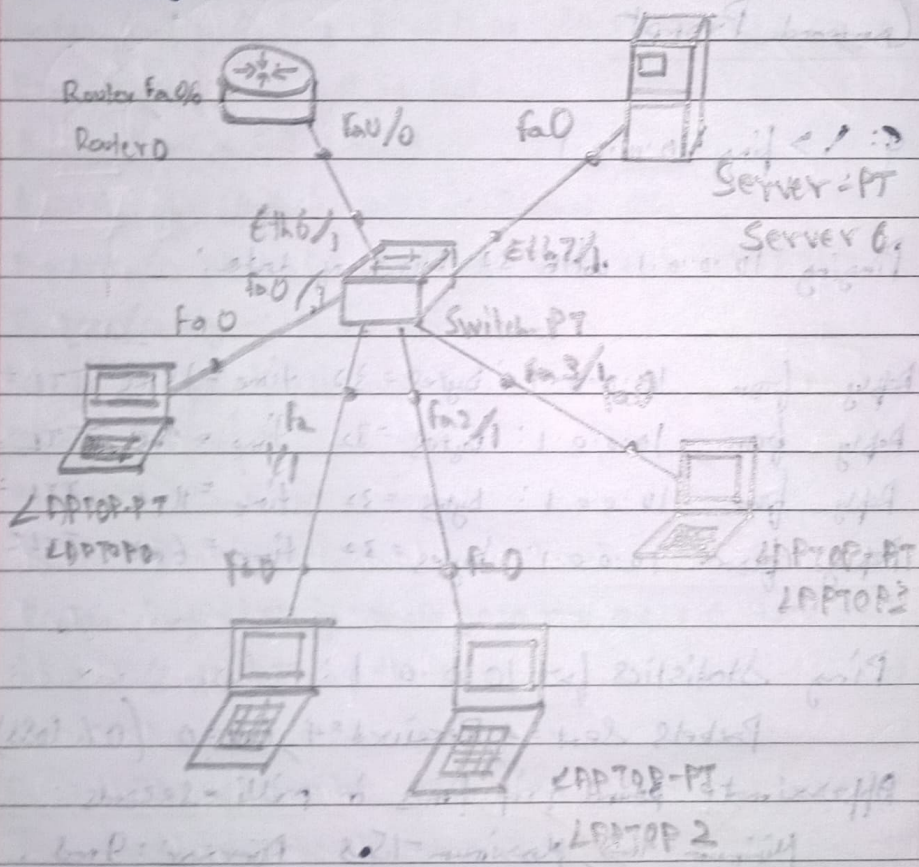 Router Fa0/0
Router0
Fa0/0
Fa0
Server-PT
Server 6.
Eth6/1
Eth7/1.
Fa0/1
Fa0
Switch PT
Fa3/1
Fa0
Fa
1/1
Fa2/1
LAPTOP-PT
LAPTOP0
Fa0
Fa0
LAPTOP-PT
LAPTOP3
LAPTOP-PT
LAPTOP 2